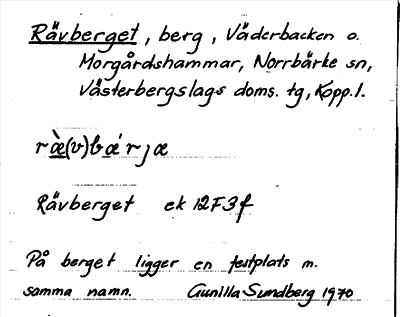 Rävberget, berg, Väderbacken o.
Morgårdshammar, Norrbärke sn,
Västerbergslags doms. tg, Kopp. l.
ræ̀(v)bǽrjæ
Rävberget ek 12F3f
På berget ligger en festplats m.
samma namn. Gunilla Sundberg 1970